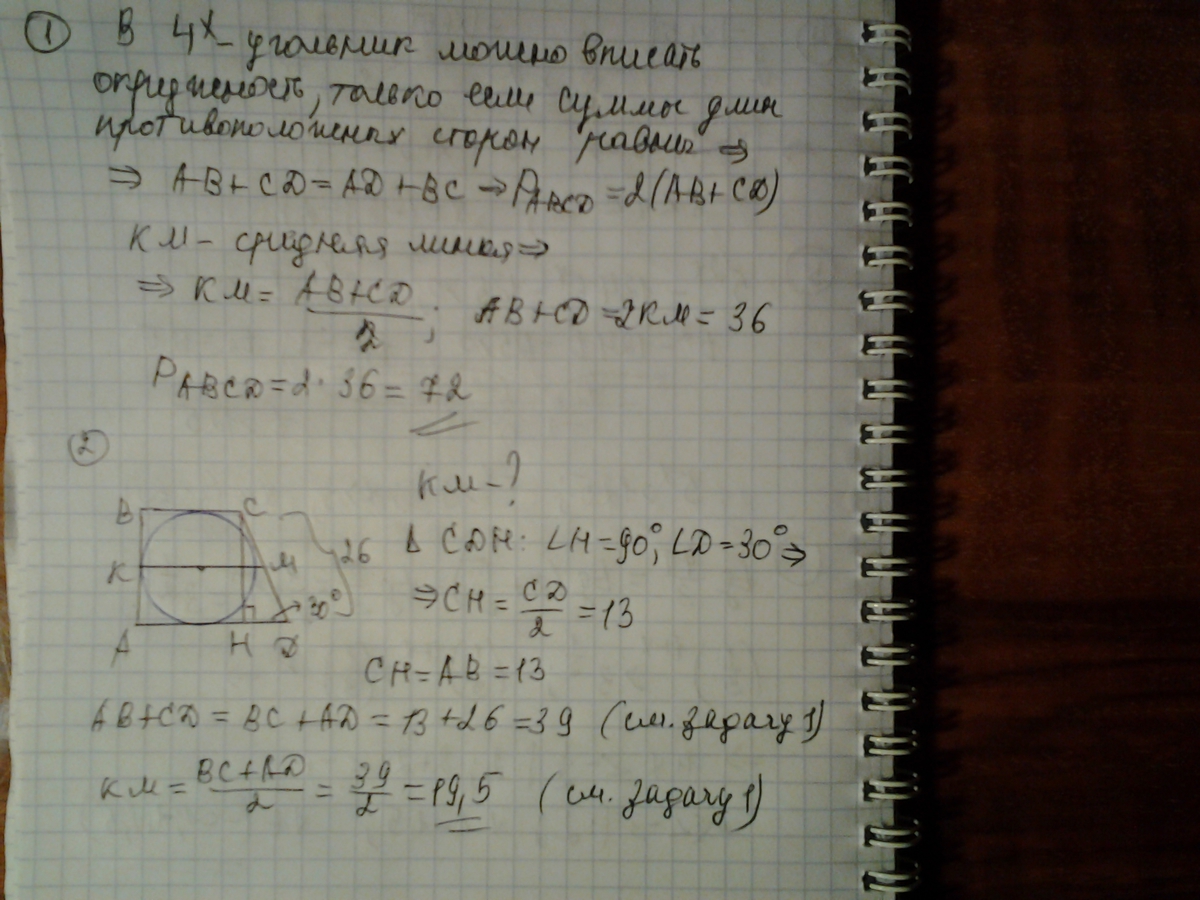 ① В 4х-угольник можно вписать
окружность, только если суммы длин
противоположных сторон равны ⇒
⇒ AB+CD=AD+BC → P_ABCD=2(AB+CD)
KM - средняя линия ⇒
⇒ KM = (AB+CD)/2; AB+CD=2KM=36
P_ABCD=2·36=72
②
KM-?
B C
26
K M
30°
A H D
Δ CDH: ∠H=90°, ∠D=30° ⇒
⇒ CH = CD/2 = 13
CH=AB=13
AB+CD = BC+AD = 13+26=39 (см. задачу 1)
KM = (BC+AD)/2 = 39/2 = 19,5 (см. задачу 1)